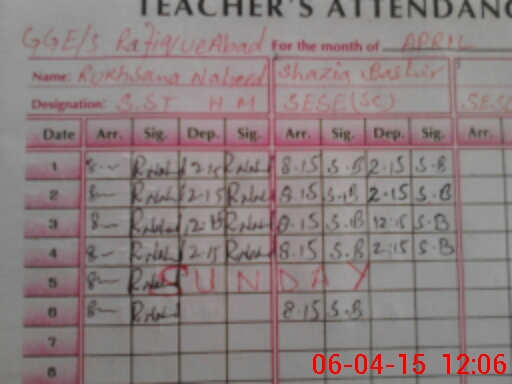 TEACHER'S ATTENDANC
GGE/S RafiqueAbad For the month of APRIL
Name: Rukhsana Naheed Shazia Bashir
Designation: S.ST H M SESE(SC) SESE
Date Arr. Sig. Dep. Sig. Arr. Sig. Dep. Sig. Arr.
1 8- 2.15 8.15 S.B 2.15 S.B
2 8- 2.15 8.15 S.B 2.15 S.B
3 8- 12.15 8.15 S.B 12.15 S.B
4 8- 2.15 8.15 S.B 2.15 S.B
5 8- SUNDAY
6 8- 8.15 S.B
7
8
06-04-15 12:06